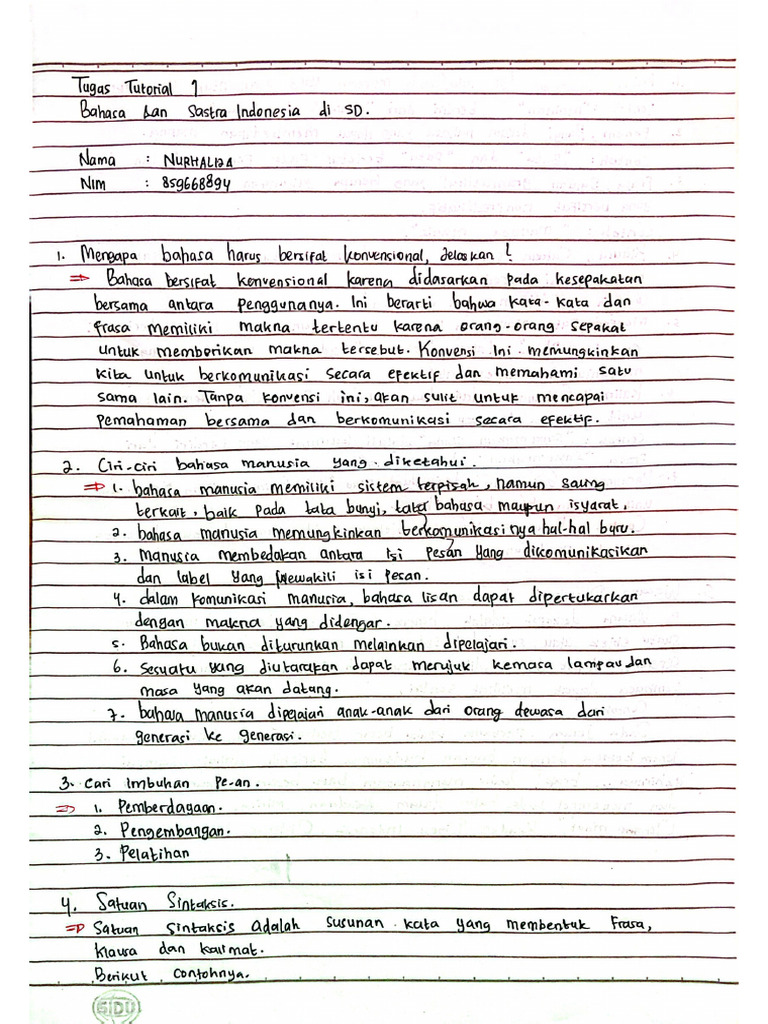 Tugas Tutorial 1
Bahasa dan Sastra Indonesia di SD.
Nama : NURHALIZA
Nim : 859668894
1. Mengapa bahasa harus bersifat konvensional, Jelaskan !
⇒ Bahasa bersifat konvensional karena didasarkan pada kesepakatan
bersama antara penggunanya. Ini berarti bahwa kata-kata dan
frasa memiliki makna tertentu karena orang-orang sepakat
untuk memberikan makna tersebut. Konvensi Ini memungkinkan
kita untuk berkomunikasi secara efektif dan memahami satu
sama lain. Tanpa konvensi ini, akan sulit untuk mencapai
pemahaman bersama dan berkomunikasi secara efektif.
2. Ciri-ciri bahasa manusia yang diketahui.
⇒ 1. bahasa manusia memiliki sistem terpisah, namun saling
terkait, baik pada tata bunyi, tata bahasa maupun isyarat.
2. bahasa manusia memungkinkan berkomunikasinya hal-hal baru.
3. manusia membedakan antara isi pesan yang dikomunikasikan
dan label yang mewakili isi pesan.
4. dalam komunikasi manusia, bahasa lisan dapat dipertukarkan
dengan makna yang didengar.
5. Bahasa bukan diturunkan melainkan dipelajari.
6. Sesuatu yang diutarakan dapat merujuk kemasa lampau dan
masa yang akan datang.
7. bahasa manusia dipelajari anak-anak dari orang dewasa dari
generasi ke generasi.
3. Cari imbuhan pe-an.
⇒ 1. Pemberdayaan.
2. Pengembangan.
3. Pelatihan
4. Satuan Sintaksis.
⇒ Satuan sintaksis adalah susunan kata yang membentuk Frasa,
klausa dan kalimat.
Berikut contohnya.
SIDU